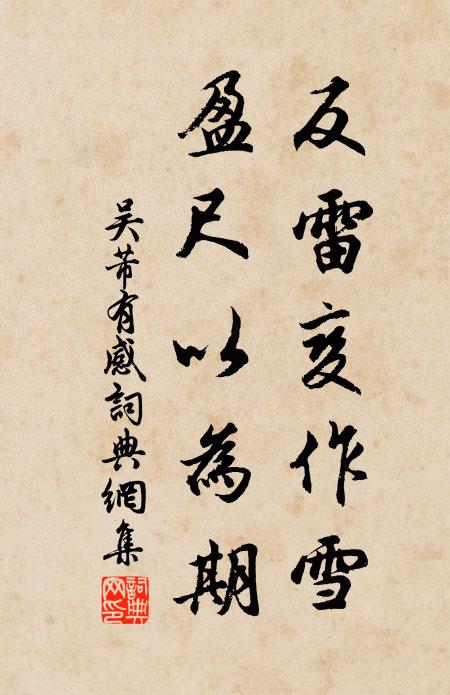 反雷变作雪
盈尺以為期
吴芾有感詞典網集
詞典
网印